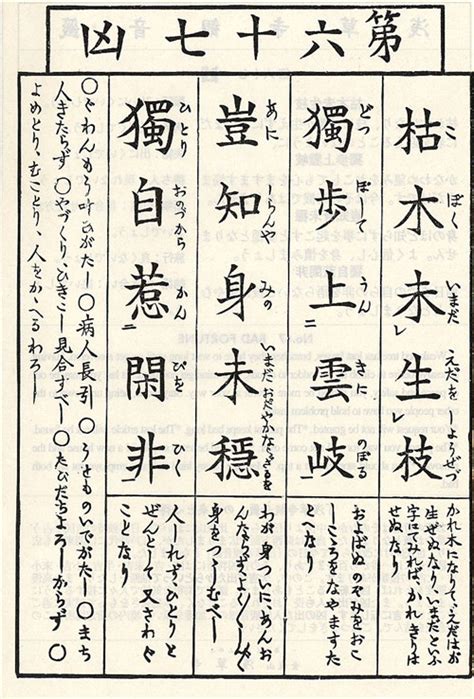 第六十七凶
枯木未生枝
こ ぼく いまだ えだを しようぜず
かれ木になりて、えだはが
生ぜぬなり、いまだといふ
字にてみれば、かれきりは
せぬなり
獨歩上雲岐
どつ ぽて うん きに のぼる
およばぬのぞみをおこ
しこころをなやますた
となり
豈知身未穏
あに しらんや みの いまだおだやかならざるを
わが身ついに、あんお
身をつゝしむべし
獨自惹閑非
ひとり おのづから かん ぴを ひく
人しれず、ひとりと
ぜんとして又さわぐ
ことなり
〇ぐわんもう叶ひがたし〇病人長引〇うせものいでがたし〇まち
人きたらず〇やづくり、ひきこし見合すべし〇たびだちよろしからず〇
よめとり、むことり、人をかゝへるわろし